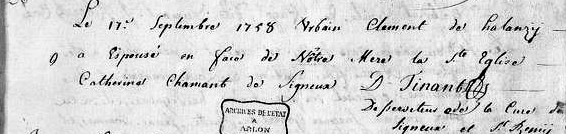 Le 17.e Septembre 1758 Urbain Clement de halanzy
9 a Espousé en face de Nôtre Mere la S.te Eglise
Catherine Chamant de Signeux D Tinant
Desserviteur de la Cure de
Signeux et S.t Remis
ARCHIVES DE L'ETAT
A
ARLON